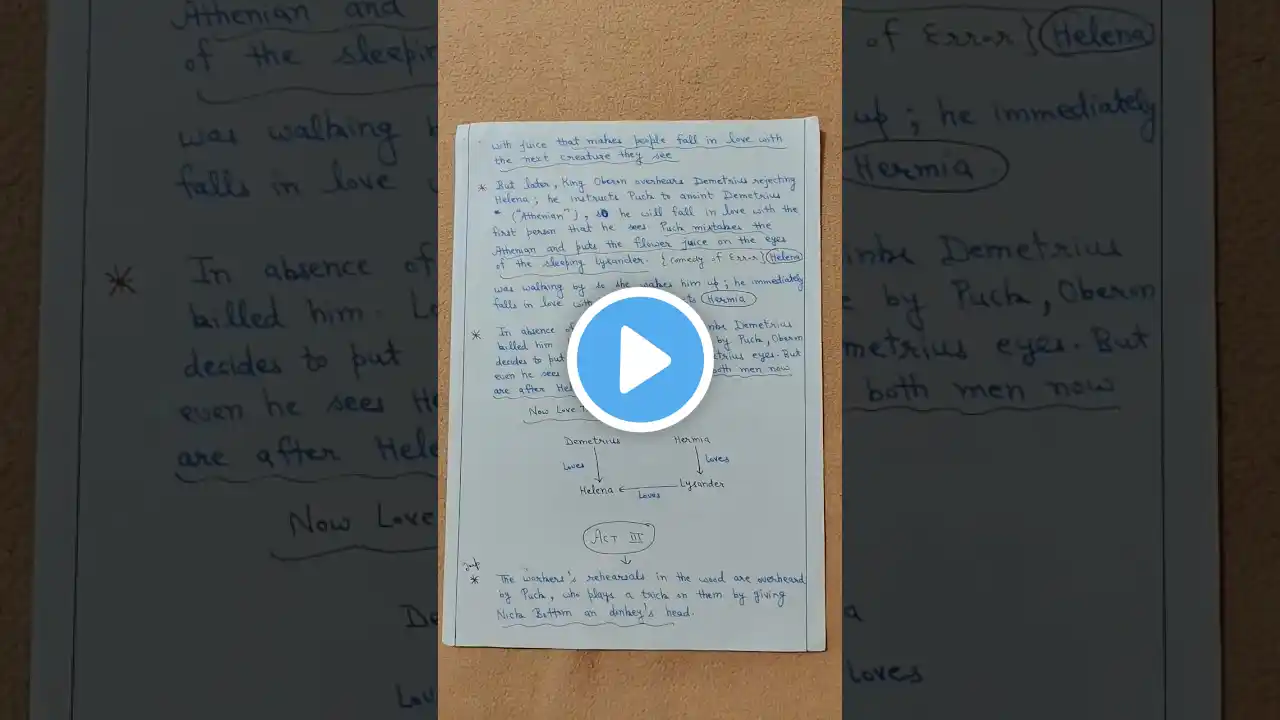 with juice that makes people fall in love with
the next creature they see
* But later, King Oberon overhears Demetrius rejecting
Helena; he instructs Puck to anoint Demetrius
("Athenian"), so he will fall in love with the
first person that he sees. Puck mistakes the
Athenian and puts the flower juice on the eyes
of the sleeping Lysander. {Comedy of Error} Helena
was walking by so she wakes him up; he immediately
falls in love with Hermia
* In absence of Demetrius
killed him. by Puck, Oberon
decides to put eyes. But
even he sees both men now
are after
Now Love
Demetrius Hermia
Loves Loves
Helena Lysander
Loves
Act III
* The workers's rehearsals in the wood are overheard
by Puck, who plays a trick on them by giving
Nick Bottom an donkey's head.
Athenian and
of the
was walking
falls in love
* In absence of
killed him.
decides to put
even he sees
are after
Now Love
of Error} Helena
up; he immediately
Hermia
Demetrius
by Puck, Oberon
eyes. But
both men now
Loves